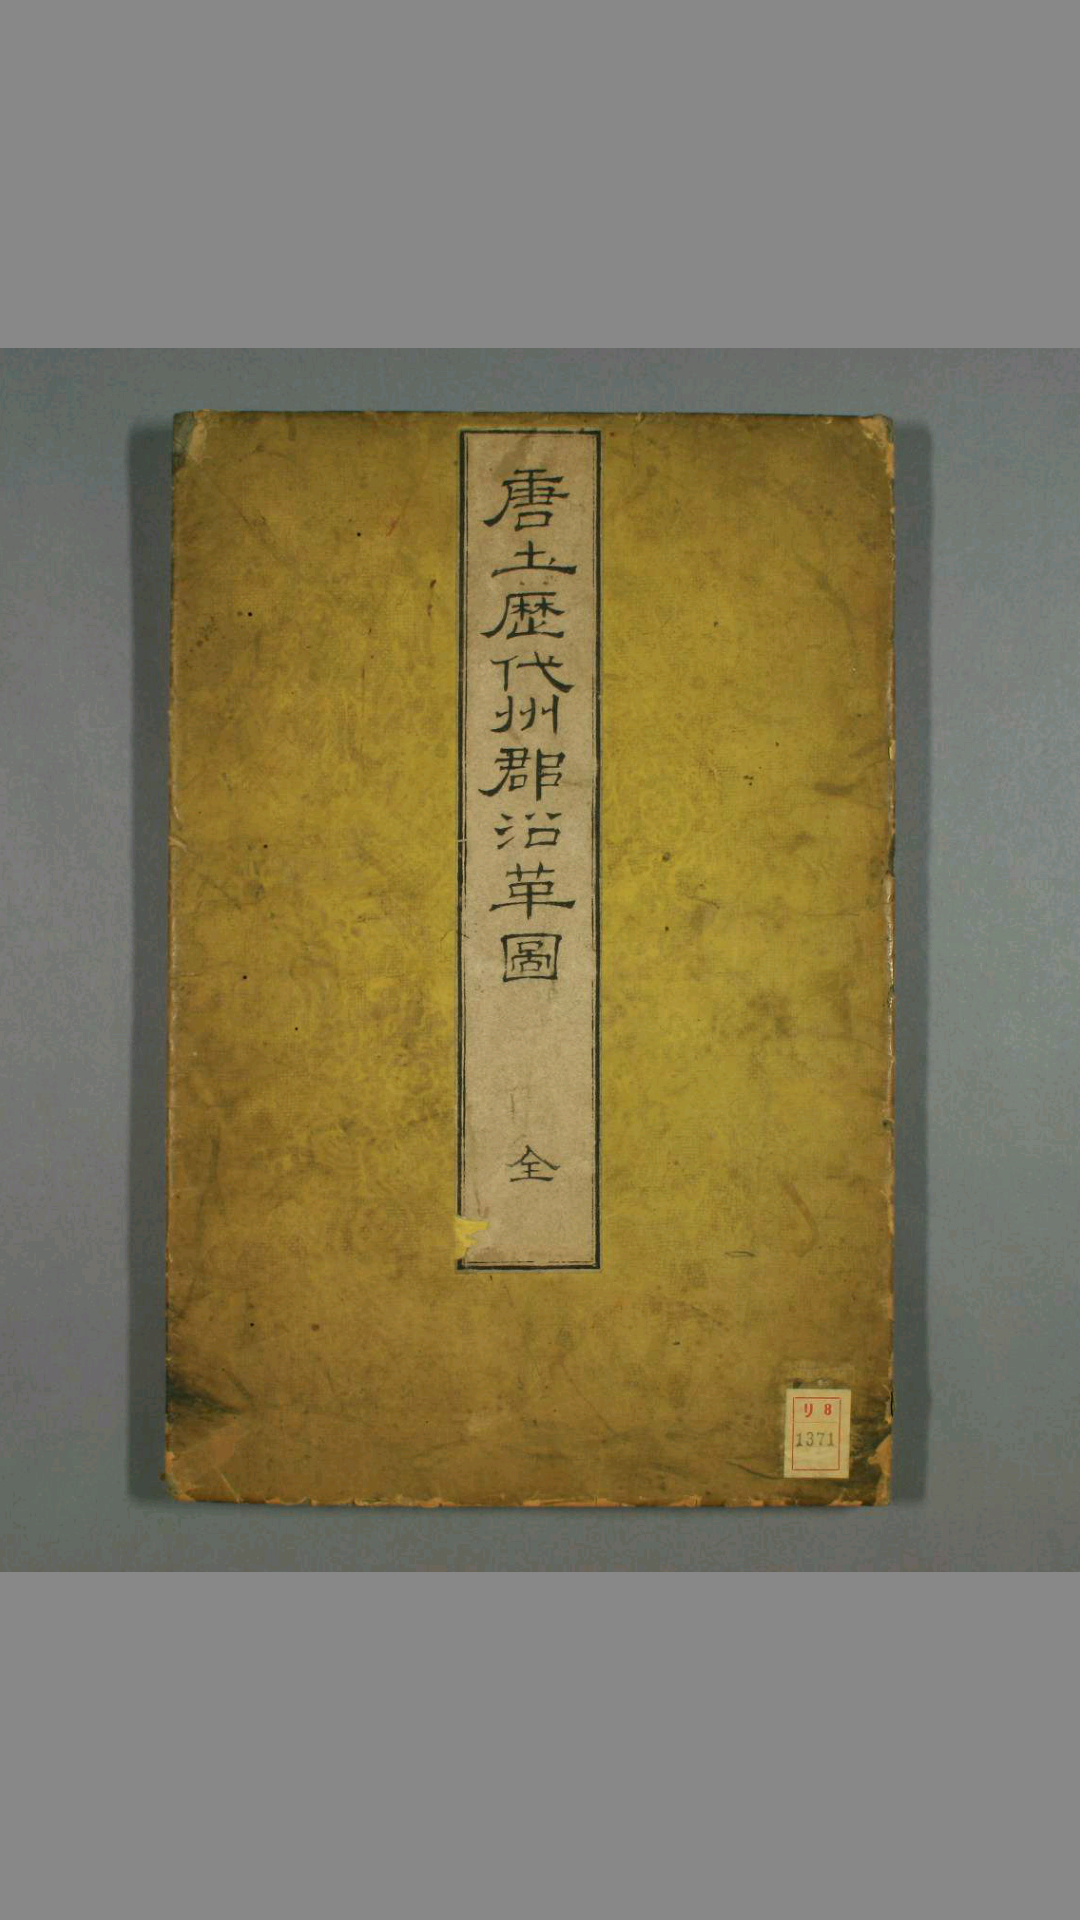 唐土歴代州郡沿革圖
全
リ 8
1371